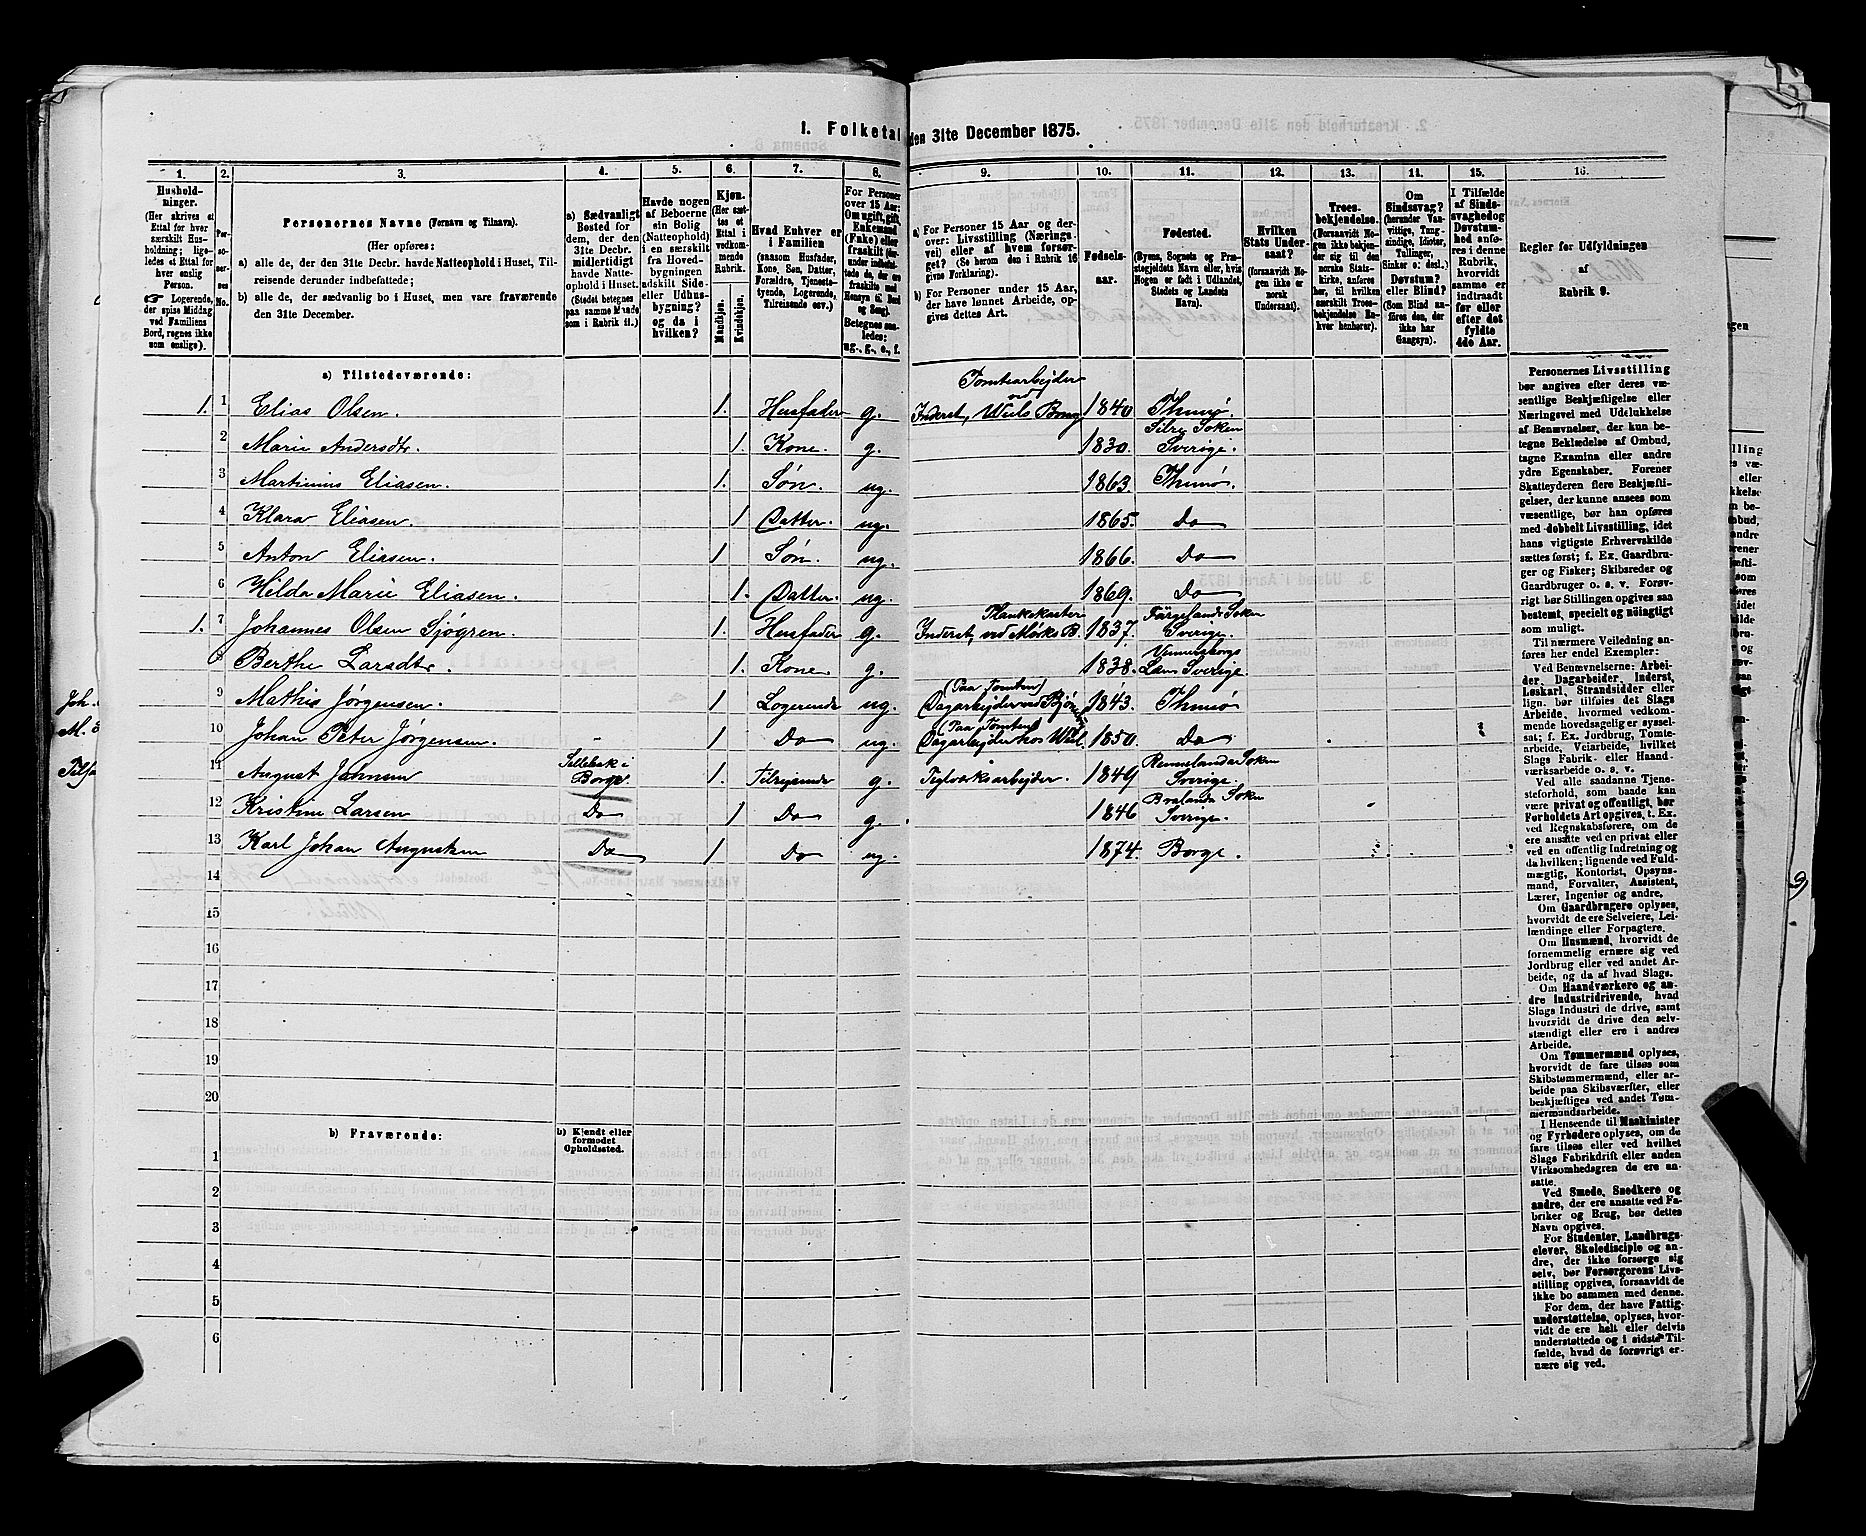 1. Folketal den 31te December 1875.
1. 2. 3. 4. 5. 6. 7. 8. 9. 10. 11. 12. 13. 14. 15. 16.
Husholdninger.
(Her skrives et Ettal for hver særskilt Husholdning; ligeledes et Ettal for hver enslig Person.
☞ Logerende, der spise Middag ved Familiens Bord, regnes ikke som enslige).
Personernes No.
Personernes Navne (Fornavn og Tilnavn).
(Her opføres:
a) alle de, der den 31te Decbr. havde Natteophold i Huset, Tilreisende derunder indbefattede;
b) alle de, der sædvanlig bo i Huset, men vare fraværende den 31te December.
a) Sædvanligt Bosted for dem, der den 31te Decbr. midlertidigt havde Natteophold i Huset. (Stedet betegnes paa samme Maade som i Rubrik 11.)
Havde nogen af Beboerne sin Bolig (Natteophold) i en særskilt fra Hovedbygningen adskilt Side- eller Udhusbygning? og da i hvilken?
Kjøn. (Her sættes et Ettal i vedkommende Rubrik.
Mandkjøn. Kvindekjøn.
Hvad Enhver er i Familien (saasom Husfader, Kone, Søn, Datter, Forældre, Tjenestetyende, Logerende, Tilreisende osv.)
For Personer over 15 Aar: Om ugift, gift, Enkemand (Enke) eller fraskilt
Betegnes saaledes: ug., g., e., f.
a) For Personer 15 Aar og derover: Livsstilling (Næringsvei) eller af hvem forsørget? (Se herom den i Rubrik 16 givne Forklaring).
b) For Personer under 15 Aar, der have lønnet Arbeide, opgives dettes Art.
Fødselsaar.
Fødested.
(Byens, Sognets og Præstegjeldets Navn eller, hvis Nogen er født i Udlandet, Stedets og Landets Navn).
Hvilken Stats Undersaat? (forsaavidt Nogen ikke er norsk Undersaat).
Troesbekjendelse. (Forsaavidt Nogen ikke bekjender sig til den norske Statskirke, anføres her, til hvilken særskilt Troesbekjendelse Enhver henhører).
Om Sindssvag? (herunder Vanvittige, Tungsindige, Idioter, Tullinger, Sinker o. desl.) Døvstum? eller Blind? (Som Blind anføres den, der ikke har Gangsyn).
I Tilfælde af Sindssvaghed og Døvstumhed anføres i denne Rubrik, hvorvidt samme er indtraadt før eller efter det fyldte 4de Aar.
Regler for Udfyldningen af Rubrik 9.
a) Tilstedeværende:
1. 1 Elias Olsen. 1. Husfader g. Tomtearbejder ved Inderst, Wiels Brug 1840 Thunø.
2 Marie Andersdtr. 1. Kone. g. 1830. Silre Soken Sverige.
3 Martinius Eliasen. 1. Søn. ug. 1863. Thunø.
4 Klara Eliasen. 1 Datter. ug. 1865. Do
5 Anton Eliasen. 1 Søn. ug. 1866. Do
6 Hilda Marie Eliasen. 1. Datter. ug. 1869. Do
1. 7 Johannes Olsen Sjøgren. 1. Husfader g. Plankekaster Inderst, ved Møks B. 1837. Färgelanda Soken Sverige.
8 Berthe Larsdtr. 1. Kone g. 1838. Venersborgs Län Sverige.
9 Mathis Jørgensen. 1 Logerende ug. (Paa Tomten) Dagarbejder ved Bjørn 1843. Thunø
10 Johan Peter Jørgensen. 1 Do ug. (Paa Tomten) Dagarbejder hos Wiel. 1850. Do
11 August Johnsen Sellebak i Borge. 1. Tilrejsende g. Teglværksarbejder. 1849 Rennelanda Soken Sverige.
12 Kristine Larsen Do 1 Do g. 1846 Bralanda Soken Sverige.
13 Karl Johan Augustsen Do 1 Do ug. 1874. Borge.
14
15
16
17
18
19
20
b) Fraværende: b) Kjendt eller formodet Opholdssted.
1
2
3
4
5
6
Personernes Livsstilling bør angives efter deres væsentlige Beskjæftigelse eller Næringsvei med Udelukkelse af Benævnelser, der kun betegne Beklædelse af Ombud, tagne Examina eller andre ydre Egenskaber. Forener Skatteyderen flere Beskjæftigelser, der kunne ansees som væsentlige, bør han opføres med dobbelt Livsstilling, idet hans vigtigste Erhvervskilde sættes først; f. Ex. Gaardbruger og Fisker; Skibsreder og Gaardbruger o. s. v. Forøvrigt bør Stillingen opgives saa bestemt, specielt og nøiagtigt som muligt.
Til nærmere Veiledning anføres her endel Exempler:
Ved Benævnelserne: Arbeider, Dagarbeider, Inderst, Løskarl, Strandsidder eller lign. bør tilføies det Slags Arbeide, hvormed vedkommende hovedsagelig er sysselsat; f. Ex. Jordbrug, Tomtearbeide, Veiarbeide, hvilket Slags Fabrik- eller Haandværksarbeide o. s. v.
Ved alle saadanne Tjenesteforhold, som baade kan være privat og offentligt, bør Forholdets Art opgives, t. Ex. ved Regnskabsførere, om de ere ansatte ved en privat eller ved en offentlig Indretning og da hvilken; lignende ved Fuldmægtig, Kontorist, Opsynsmand, Forvalter, Assistent, Lærer, Ingeniør og andre.
Om Gaardbrugere oplyses, hvorvidt de ere Selveiere, Leilændinge eller Forpagtere.
Om Husmænd, hvorvidt de fornemmelig ernære sig ved Jordbrug eller ved andet Arbeide, og da af hvad Slags.
Om Haandværkere og andre Industridrivende, hvad Slags Industri de drive, samt hvorvidt de drive den selvstændigt eller ere i andres Arbeide.
Om Tømmermænd oplyses, hvorvidt de fare tilsøs som Skibstømmermænd, eller arbeide paa Skibsværfter, eller beskjæftiges ved andet Tømmermandsarbeide.
I Henseende til Maskinister og Fyrbødere oplyses, om de fare tilsøs eller ved hvilket Slags Fabrikdrift eller anden Virksomhedsgren de ere ansatte.
Ved Smede, Snedkere og andre, der ere ansatte ved Fabriker og Brug, bør dettes Navn opgives.
For Studenter, Landbrugselever, Skoledisciple og andre, der ikke forsørge sig selv, bør Forsørgerens Livsstilling opgives, forsaavidt de ikke bo sammen med denne.
For dem, der have Fattigunderstøttelse, oplyses, hvorvidt de ere helt eller delvis understøttede og i sidste Tilfælde, hvad de forøvrigt ernære sig ved.